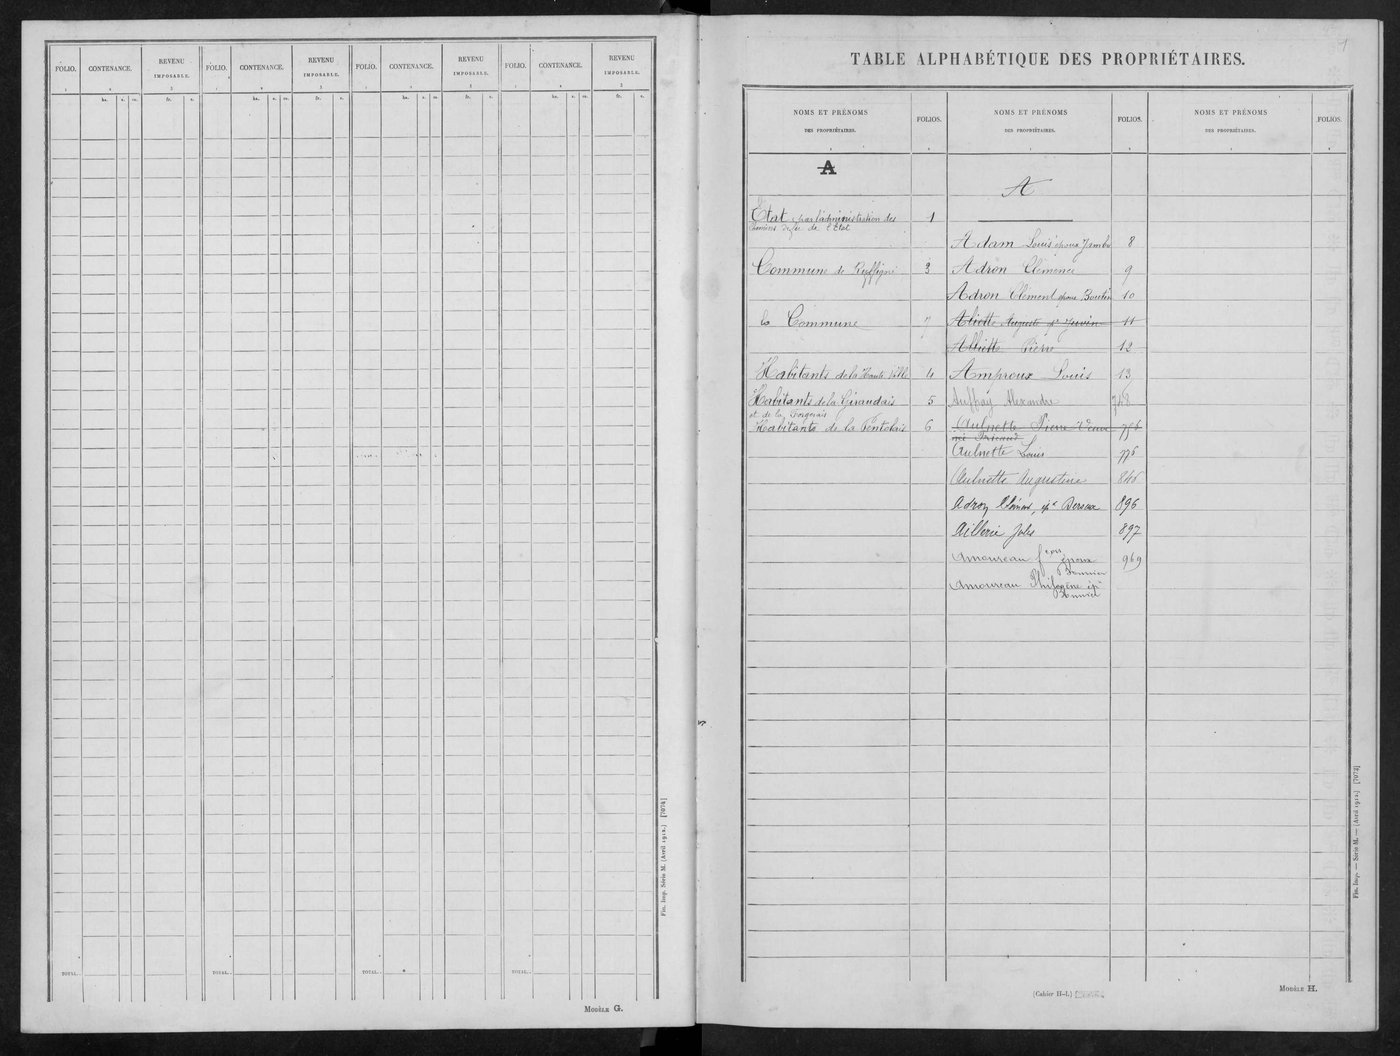 FOLIO. CONTENANCE. REVENU IMPOSABLE. FOLIO. CONTENANCE. REVENU IMPOSABLE. FOLIO. CONTENANCE. REVENU IMPOSABLE. FOLIO. CONTENANCE. REVENU IMPOSABLE.
1 2 3 1 2 3 1 2 3 1 2 3
ha. a. ca. fr. c. ha. a. ca. fr. c. ha. a. ca. fr. c. ha. a. ca. fr. c.
TOTAL. TOTAL. TOTAL. TOTAL.
Fin. Imp. Série M. (Avril 1912.) [7074]
MODÈLE G.
1
TABLE ALPHABÉTIQUE DES PROPRIÉTAIRES.
NOMS ET PRÉNOMS DES PROPRIÉTAIRES. FOLIOS. NOMS ET PRÉNOMS DES PROPRIÉTAIRES. FOLIOS. NOMS ET PRÉNOMS DES PROPRIÉTAIRES. FOLIOS.
A
Etat par l'administration des 1
chemins de fer de l'Etat
Commune de Ruffigné 3
La Commune 7
Habitants de la Haute Ville 4
Habitants de la Giraudais 5
et de la Forgerais
Habitants de la 6
A
Adam Louis époux 8
Adron Clémence 9
Adron Clément époux Boutin 10
Aliette Auguste 11
Alliette Pierre 12
Amproux Louis 13
Auffray Alexandre 748
Aulnette Pierre Veuve
née
Aulnette Louis 775
Aulnette Augustine 846
Adron Clément, ép. 896
Aillerie Jules 897
Amoureau époux 969
Amoureau Philogène ép.
(Cahier H-I.)
MODÈLE H.
Fin. Imp. — Série M. — (Avril 1912.) [7073]